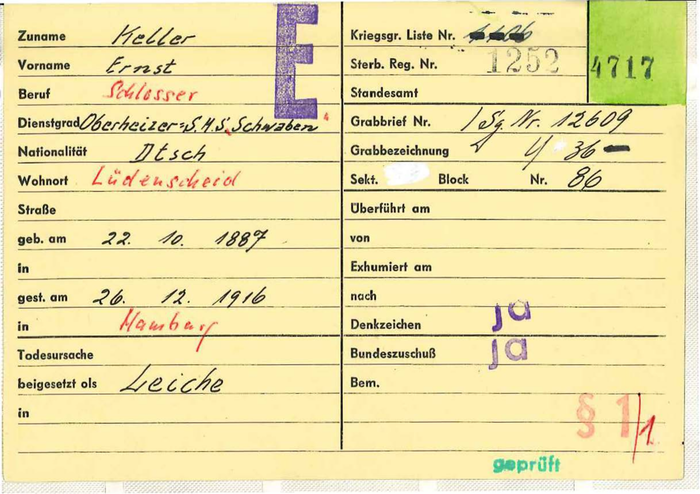 Zuname Keller
Vorname Ernst
Beruf Schlosser
Dienstgrad Oberheizer S.M.S. "Schwaben"
Nationalität Dtsch
Wohnort Lüdenscheid
Straße
geb. am 22. 10. 1887
in
gest. am 26. 12. 1916
in Hamburg
Todesursache
beigesetzt als Leiche
in
E
Kriegsgr. Liste Nr.
Sterb. Reg. Nr. 1252
4717
Standesamt
Grabbrief Nr. / Sg. Nr. 12609
Grabbezeichnung 36
Sekt. Block Nr. 86
Überführt am
von
Exhumiert am
nach
Denkzeichen ja
Bundeszuschuß ja
Bem.
§ 1/1
geprüft